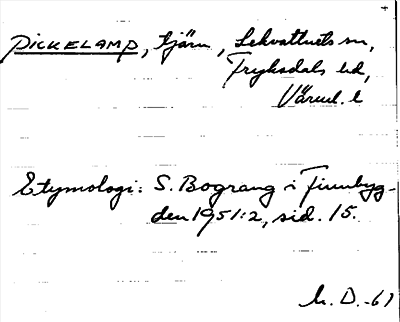 PICKELAMP, tjärn, Lekvattnets sn,
Fryksdals hd,
Värml. l
Etymologi: S. Bograng i Finnbyg-
den 1951:2, sid. 15.
M. D. -61